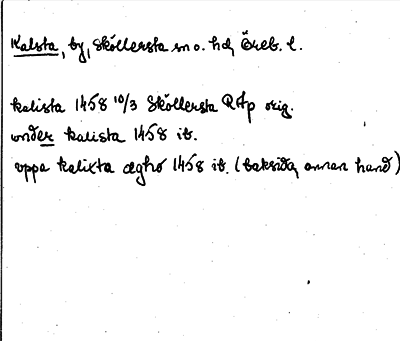 Kalsta, by, Sköllersta sn o. hd, Öreb. l.
kalista 1458 10/3 Sköllersta RAp orig.
under kalista 1458 ib.
vppa kalixta æghо 1458 ib. (baksida, annan hand)